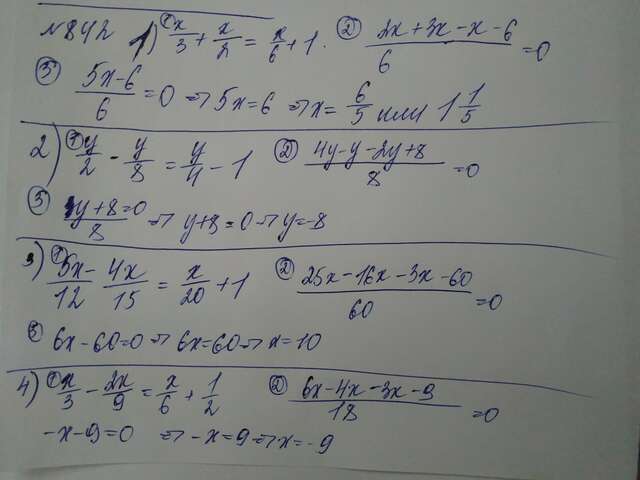 №842 1) ① x/3 + x/2 = x/6 + 1. ② (2x+3x-x-6)/6 = 0
③ (5x-6)/6 = 0 ⇒ 5x=6 ⇒ x= 6/5 или 1 1/5
2) ① y/2 - y/8 = y/4 - 1 ② (4y-y-2y+8)/8 = 0
③ (y+8=0)/8 ⇒ y+8=0 ⇒ y=-8
3) ① 5x/12 - 4x/15 = x/20 + 1 ② (25x-16x-3x-60)/60 = 0
③ 6x-60=0 ⇒ 6x=60 ⇒ x=10
4) ① x/3 - 2x/9 = x/6 + 1/2 ② (6x-4x-3x-9)/18 = 0
-x-9=0 ⇒ -x=9 ⇒ x=-9